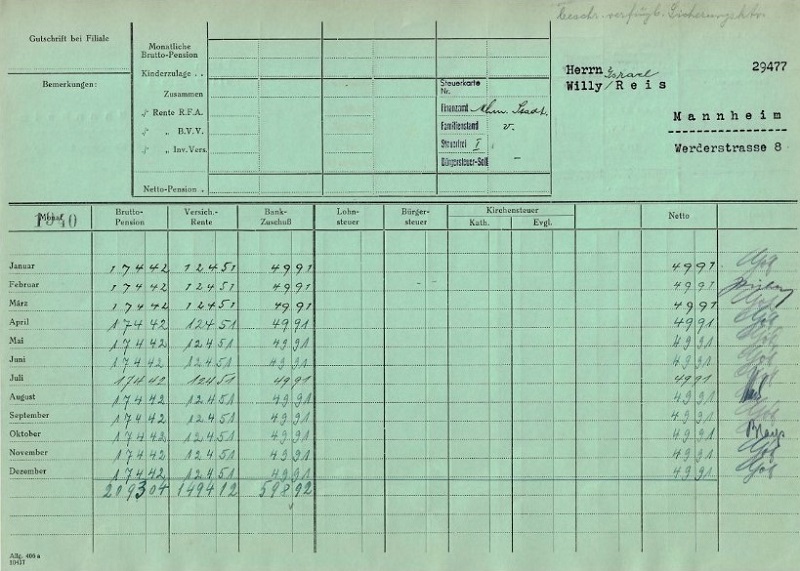 Beschr. verfügb. Sicherungskto.
Gutschrift bei Filiale
Bemerkungen:
Monatliche
Brutto-Pension
Kinderzulage . .
Zusammen
√ Rente R.F.A.
√ „ B.V.V.
√ „ Inv.Vers.
Netto-Pension .
Steuerkarte
Nr.
Finanzamt Mhm. Stadt.
Familienstand v.
Steuerfrei I
Bürgersteuer-Soll —
Herrn Israel 29477
Willy / Reis
Mannheim
Werderstrasse 8
Monat 1940 Brutto-Pension Versich.-Rente Bank-Zuschuß Lohn-steuer Bürger-steuer Kirchensteuer Kath. Evgl. Netto
Januar 17442 12451 4991 4991
Februar 17442 12451 4991 4991
März 17442 12451 4991 4991
April 17442 12451 4991 4991
Mai 17442 12451 4991 4991
Juni 17442 12451 4991 4991
Juli 17442 12451 4991 4991
August 17442 12451 4991 4991
September 17442 12451 4991 4991
Oktober 17442 12451 4991 4991
November 17442 12451 4991 4991
Dezember 17442 12451 4991 4991
209304 149412 59892
Allg. 466 a
10417